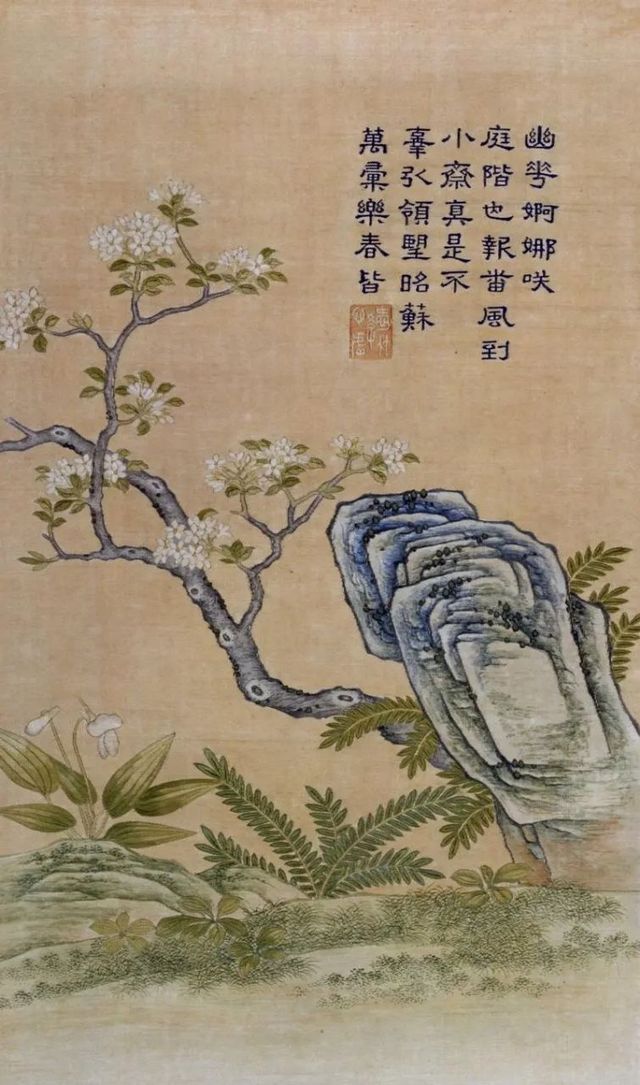 幽華婀娜咲
庭階也報番風到
小齋真是不
辜引領望昭蘇
萬彙樂春皆